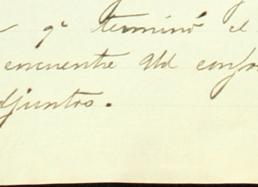 qe terminó el
encuentre Ud confor
djuntos.